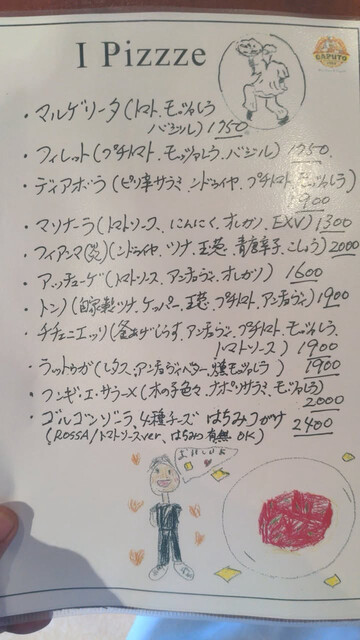 I Pizzze
CAPUTO
・マルゲリータ(トマト、モッツァレラ
バジル) 1750
・フィレット(プチトマト、モッツァレラ、バジル) 1750
・ディアボラ(ピリ辛サラミ ンドゥイヤ、プチトマト、モッツァレラ)
1900
・マリナーラ(トマトソース、にんにく、オレガノ、EXV) 1300
・フィアンマ(炎)(ンドゥイヤ、ツナ、玉葱、青唐辛子、こしょう) 2000
・アッチューゲ(トマトソース、アンチョヴィ、オレガノ) 1600
・トンノ(自家製ツナ、ケッパー、玉葱、プチトマト、アンチョヴィ) 1900
・チチェニエッリ(釜あげしらす、アンチョヴィ、プチトマト、モッツァレラ、
トマトソース) 1900
・ラットゥガ(レタス、アンチョヴィバター、燻モッツァレラ) 1900
・フンギ・エ・サラーメ(木の子色々、ナポリサラミ、モッツァレラ)
2000
・ゴルゴンゾーラ、4種チーズ はちみつがけ 2400
(ROSSA/トマトソースver、はちみつ有無 OK)